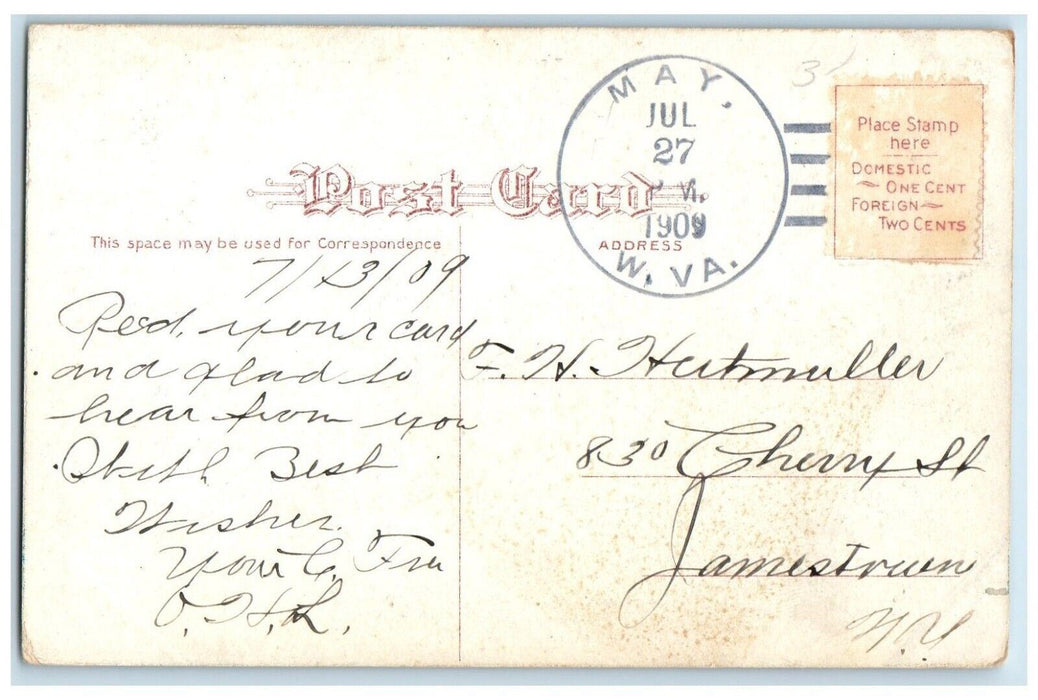 MAY,
JUL
27
M.
1909
W. VA.
Place Stamp
here
DOMESTIC
ONE CENT
FOREIGN
TWO CENTS
Post Card
This space may be used for Correspondence
ADDRESS
Recd. your card
and glad to
hear from you
With Best
Wishes.
Your C. Fra
O. H. L.
F. H. Heitmuller
830 Cherry St
Jamestown
N.Y.